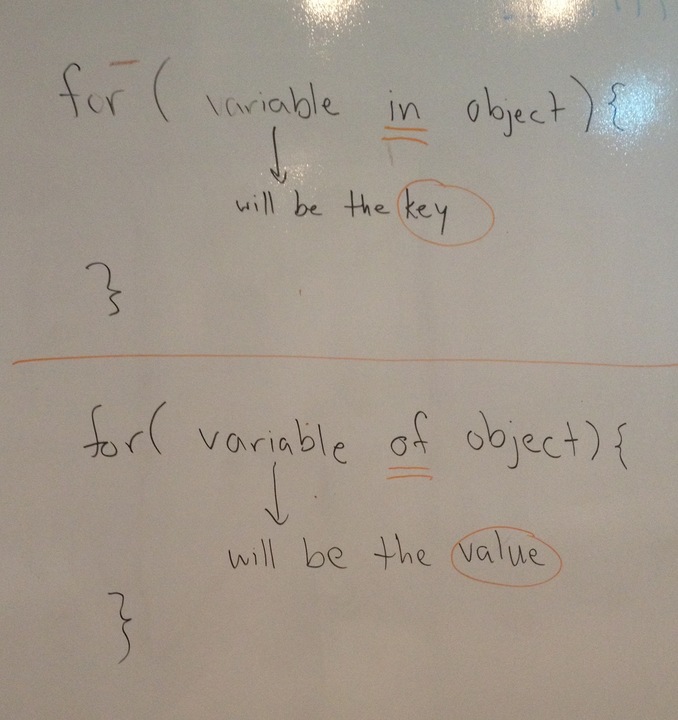 for ( variable in object) {
will be the key
}
for( variable of object) {
will be the value
}